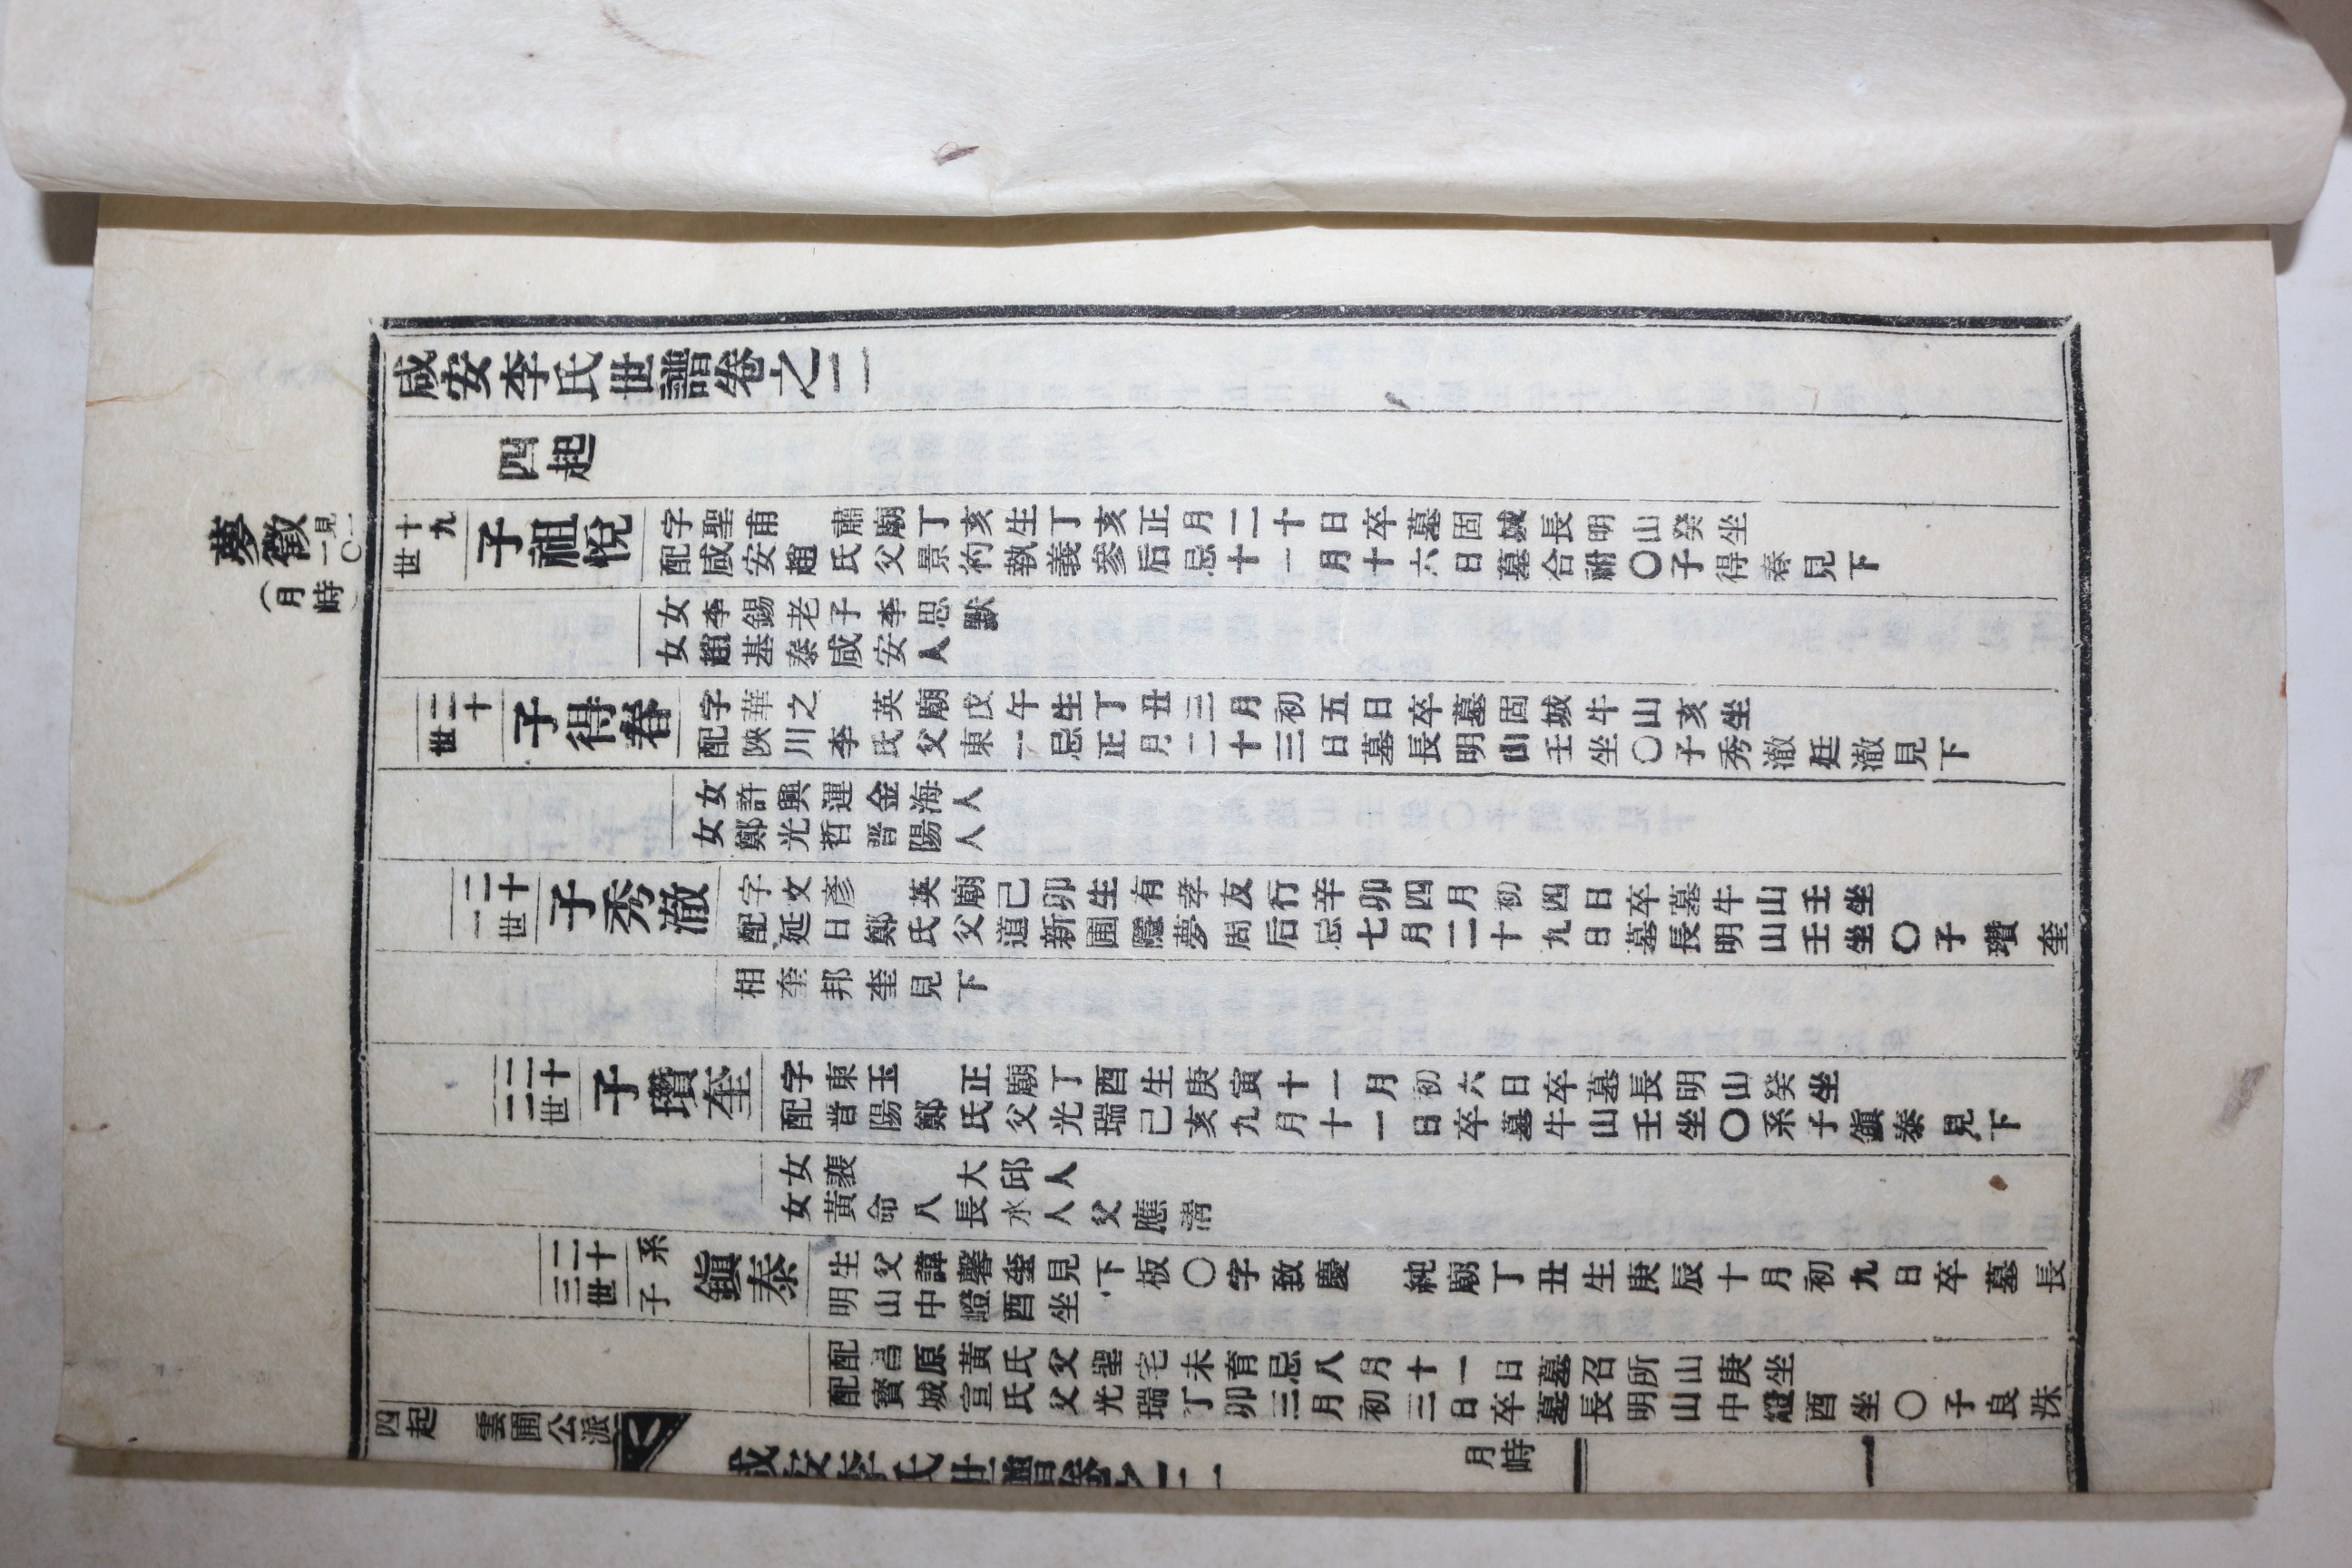 夢徵 見一一〇
(月峙)
咸安李氏世譜卷之二
四起
十九世
子祖悅
字聖甫 肅廟丁亥生丁亥正月二十日卒墓固城長明山癸坐
配咸安趙氏父景礿執義參后忌十一月十六日墓合祔〇子得春見下
女李錫老子李思默
女趙基泰咸安人
二十世
子得春
字華之 英廟戊午生丁丑三月初五日卒墓固城牛山亥坐
配陜川李氏父東一忌正月二十三日墓長明山壬坐〇子秀澈廷澈見下
女許興運金海人
女鄭光哲晋陽人
二十一世
子秀澈
字文彥 英廟己卯生有孝友行辛卯四月初四日卒墓牛山壬坐
配延日鄭氏父道新圃隱夢周后忌七月二十九日墓長明山壬坐〇子瓚奎
相奎邦奎見下
二十二世
子瓚奎
字東玉 正廟丁酉生庚寅十一月初六日卒墓長明山癸坐
配晋陽鄭氏父光瑞己亥九月十一日卒墓牛山壬坐〇系子鎭泰見下
女裵 大邱人
女黃命八長水人父應淸
二十三世
系子
鎭泰
生父諱馨奎見下板〇字致慶 純廟丁丑生庚辰十月初九日卒墓長
明山中嶝酉坐
配昌原黃氏父聖宅未育忌八月十一日墓召所山庚坐
配寶城宣氏父光瑞丁卯三月初三日卒墓長明山中嶝酉坐〇子良洙
四起 雲圃公派
咸安李氏世譜卷之二
月峙
一